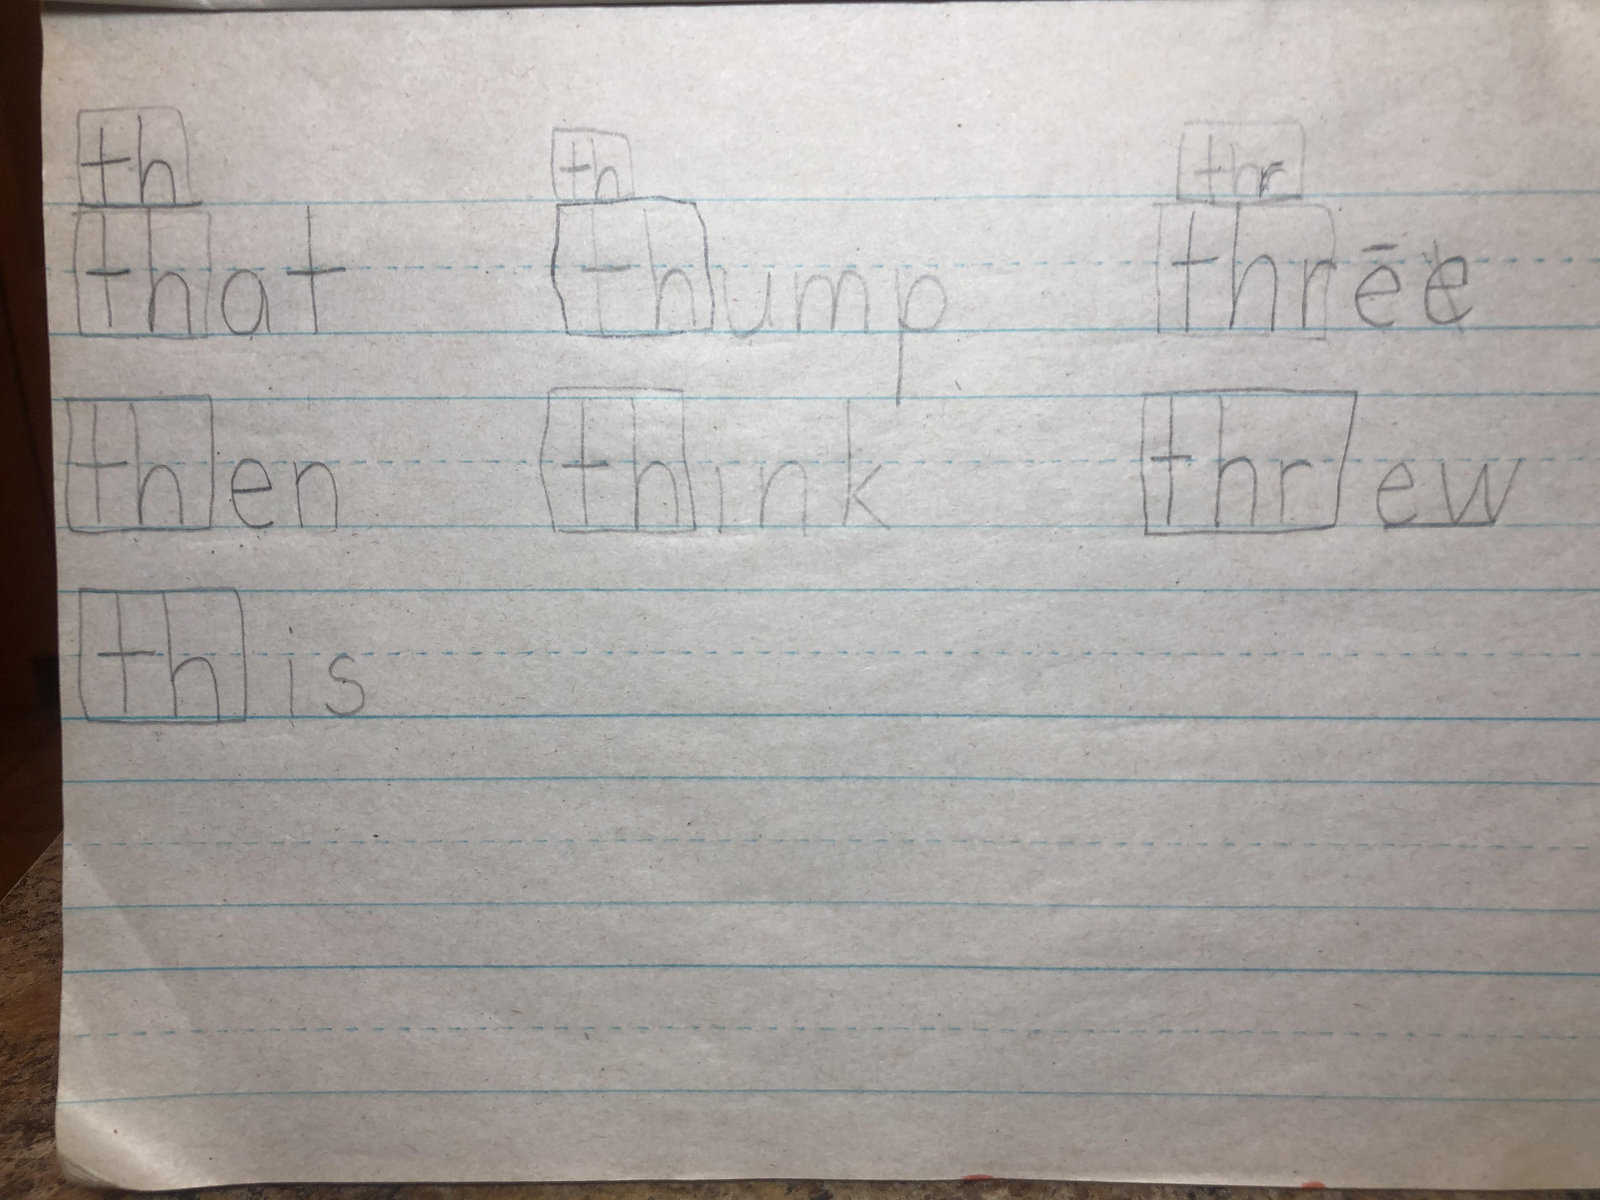 th th thr
that thump thrēe
then think threw
this